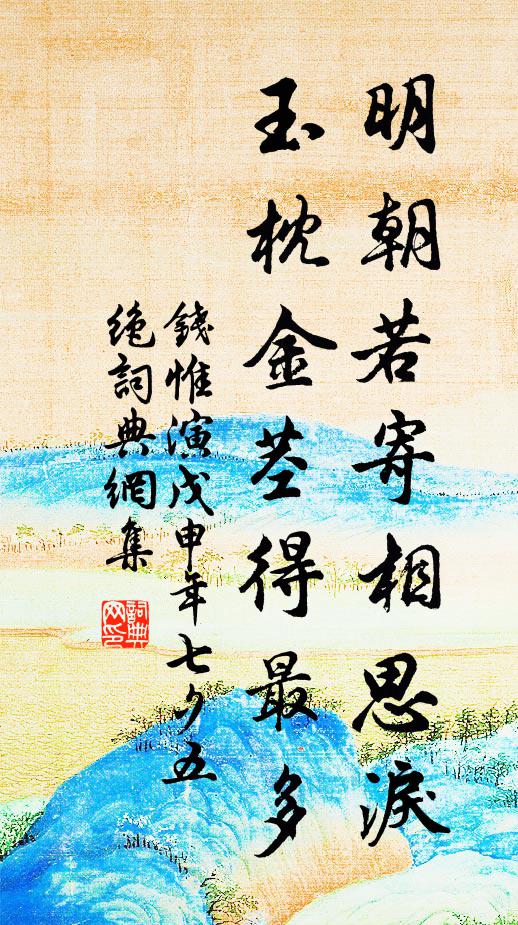 明朝若寄相思淚
玉枕金莖得最多
錢惟演戊申年七夕五
絶詞典網集
詞典
网印